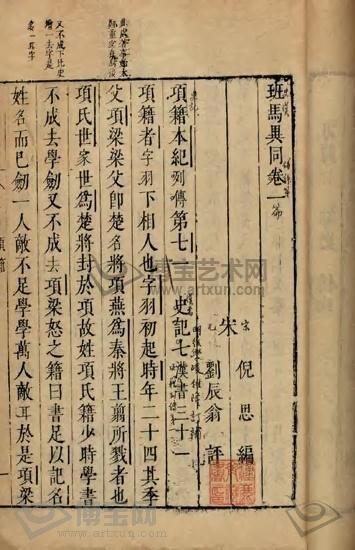 班馬異同卷一
宋
倪思編
劉辰翁評
項籍本紀列傳第七 史記七漢書三十一
項籍者字羽下相人也字羽初起時年二十四其季
父項梁梁父即楚名將項燕爲秦將王翦所戮者也
項氏世家世爲楚將封於項故姓項氏籍少時學書
不成去學劔又不成去項梁怒之籍曰書足以記名
姓名而已劔一人敵不足學學萬人敵耳於是項梁
又不成下比史
博宝艺术网
www.artxun.com